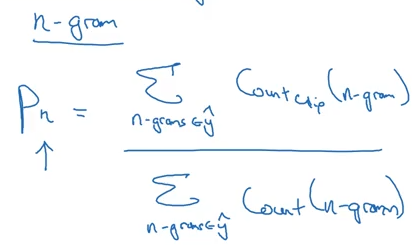 n-gram
Pn = Σ n-grams∈ŷ Countclip(n-gram)
Σ n-grams∈ŷ Count(n-gram)